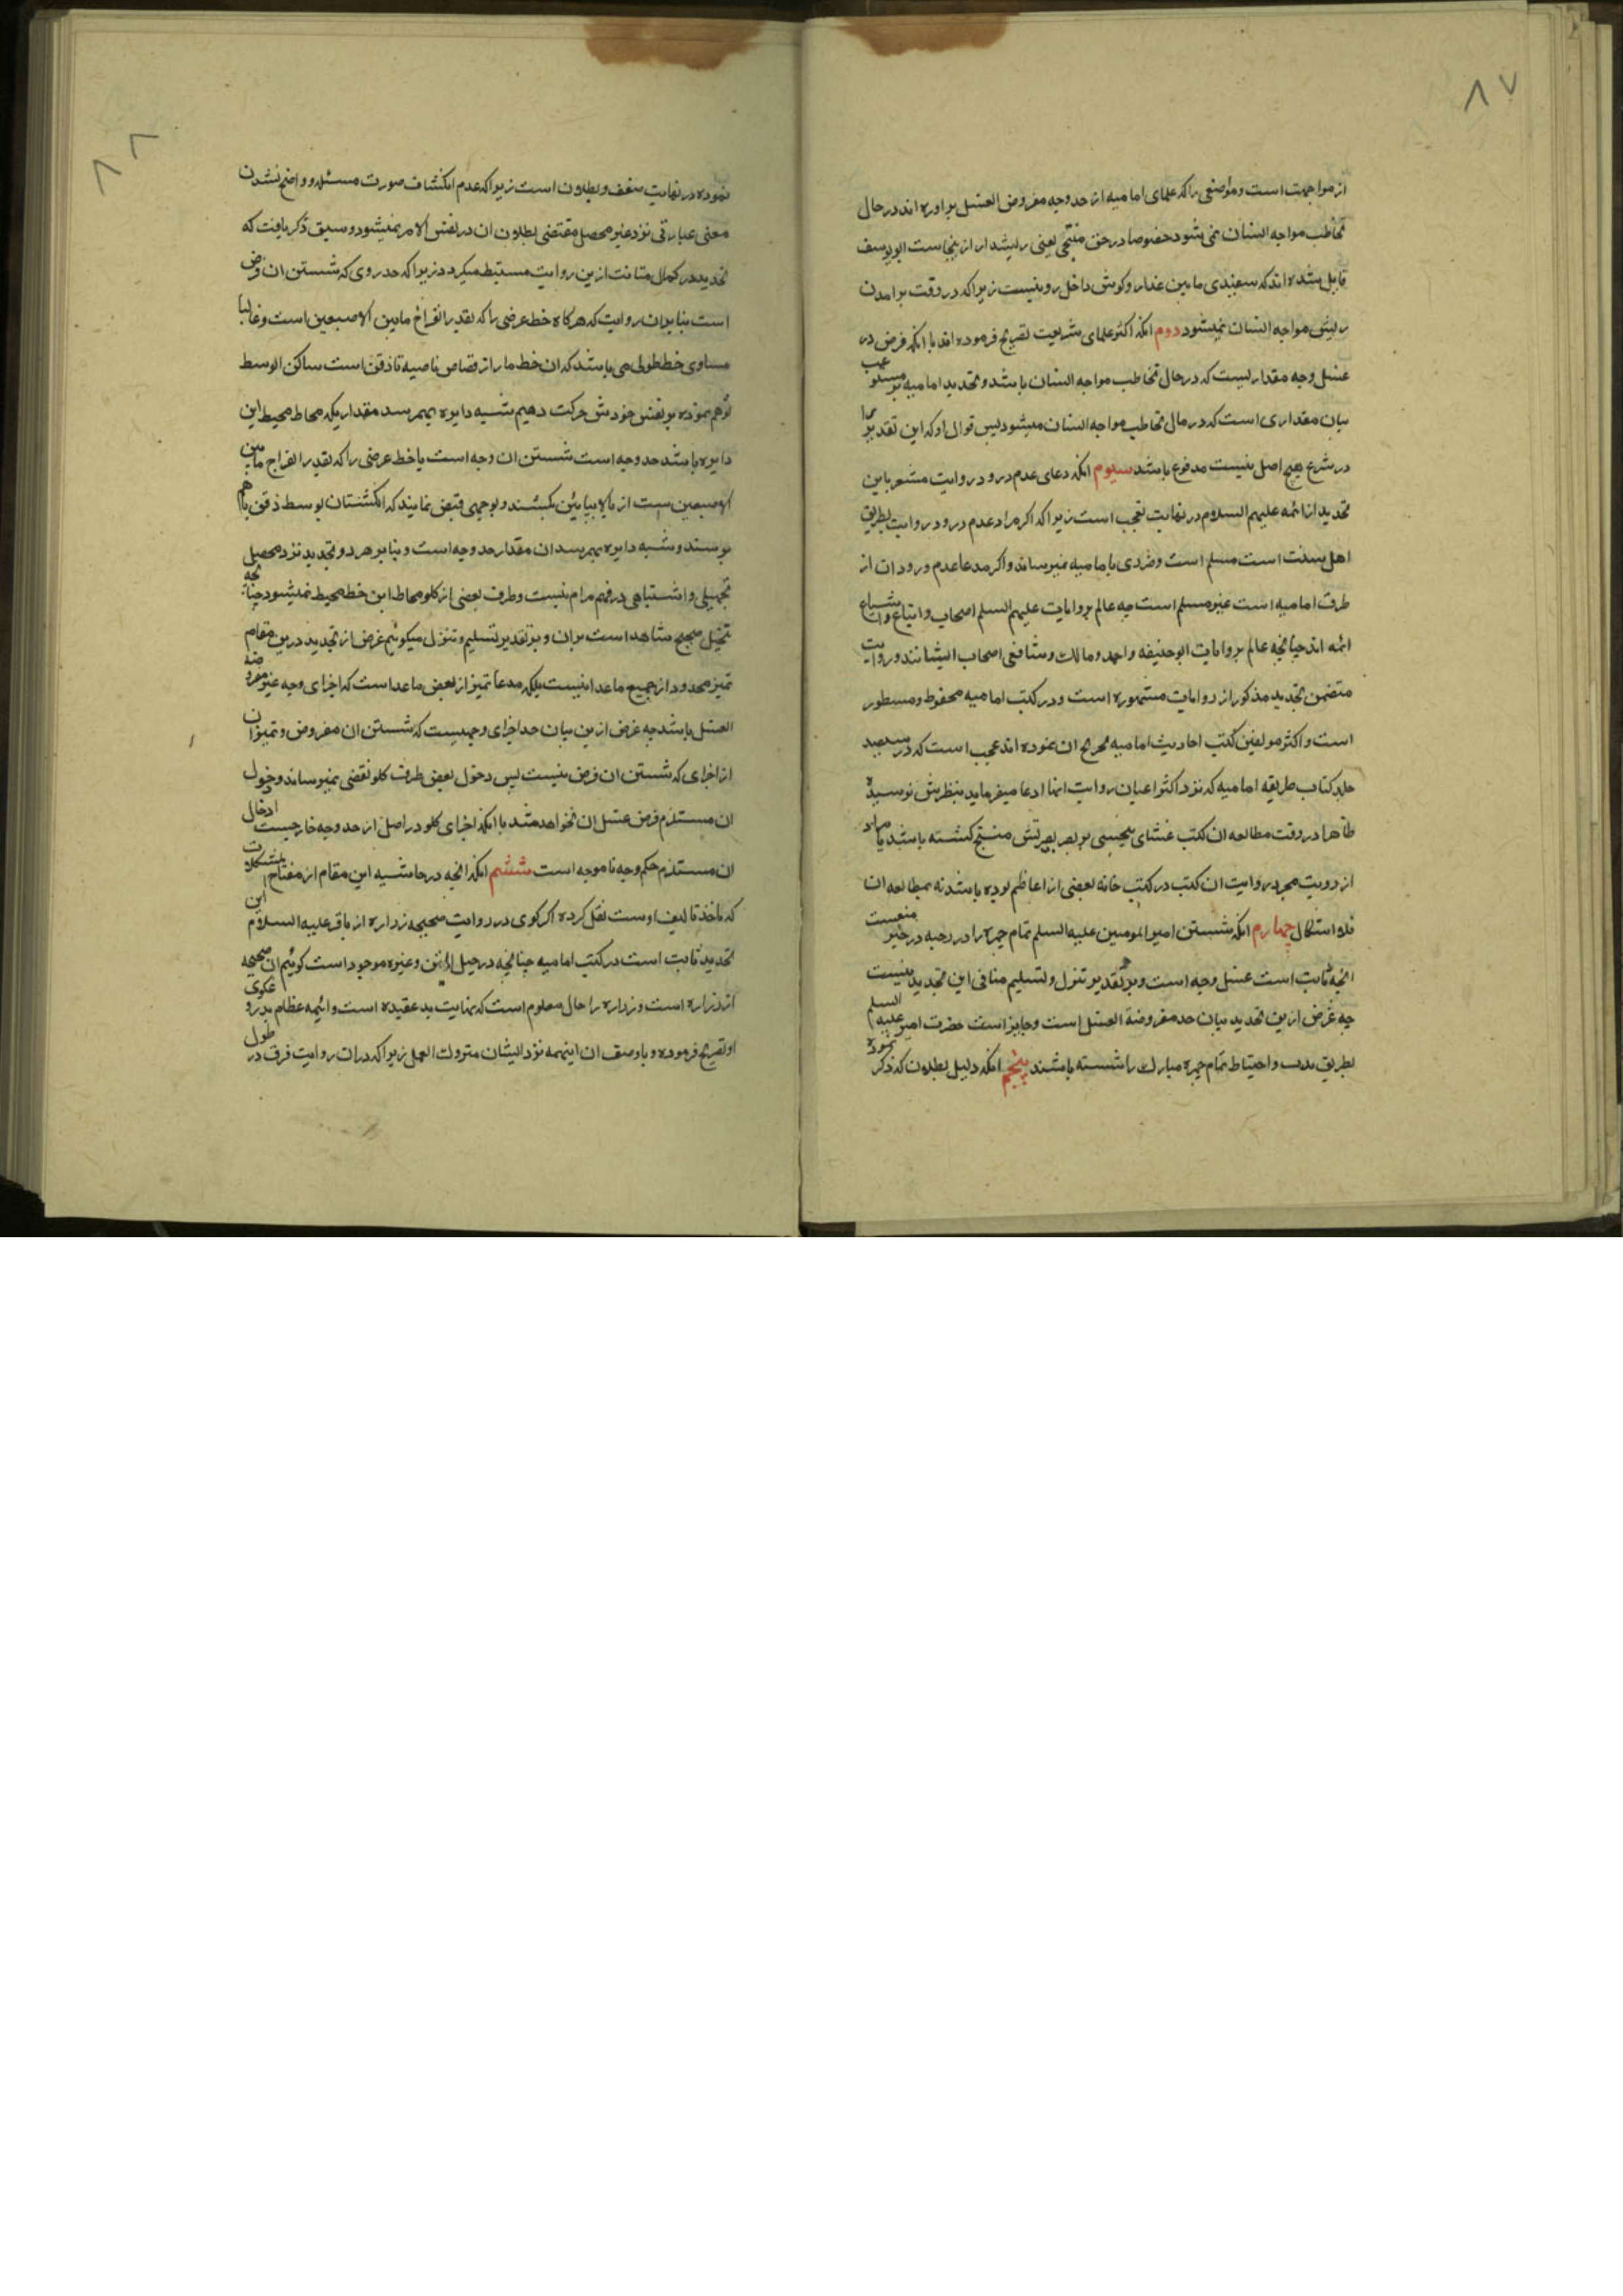 ۸۷
از مواجهت است و مواضعی را که علمای امامیه از حد وجه مفروض الغسل براورده اند در حال
تخاطب مواجه انسان نمی شود خصوصا در حق ملتحی یعنی ریشدار از نجاست ابویوسف
قایل شده اند که سفیدی مابین عذار و کوش داخل رو نیست زیرا که در وقت برامدن
ریش مواجه انسان نمیشود دوم انکه اکثر علمای شریعت تصریح فرموده اند با انکه فرض در
غسل وجه مقداریست که در حال تخاطب مواجه انسان باشد و تحدید امامیه
بیان مقداری است که در حال تخاطب مواجه انسان میشود پس قوال او که این تقدیر را
در شرع هیچ اصل نیست مدفوع باشد سیوم انکه دعای عدم ورود روایت مشعر باین
تحدید از ائمه علیهم السلام در نهایت تعجب است زیرا که اکر مراد عدم ورود روایت بطریق
اهل سنت است مسلم است و ضرری بامامیه نمیرساند و اکر مدعا عدم ورود ان از
طرف امامیه است غیر مسلم است چه عالم بروایات علیهم السلم اصحاب و اتباع و اشیاع
ائمه اند چنانچه عالم بروایات ابوحنیفه و احمد و مالک و شافعی اصحاب ایشانند و روایت
متضمن تحدید مذکور از روایات مشهوره است و در کتب امامیه محفوظ و مسطور
است و اکثر مولفین کتب احادیث امامیه تخریج ان نموده اند عجب است که در سیصد
جلد کتاب طریقه امامیه که نزد اکثر اعیان روایت انها ادعا میفرماید بنظرش نرسیده
ظاهرا در وقت مطالعه ان کتب غشای بر بصر بصیرتش منسج کشته باشد یا مراد
از رویت مجرد روایت ان کتب در کتب خانه بعضی از اعاظم بوده باشد نه بمطالعه ان
فلا اشکال چهارم انکه شستن امیر المومنین علیه السلم تمام چهره را در رحبه در خیر منعست
انچه ثابت است غسل وجه است و بر تقدیر تنزل و تسلیم منافی این تحدید نیست
چه غرض ازین تحدید بیان حد مفروضة الغسل است و جایز است حضرت امیر علیه السلم
بطریق ندب و احتیاط تمام چهره مبارک را شسته باشند پنجم انکه دلیل بطلان که ذکر نموده
۸۸
نموده در نهایت ضعف و بطلان است زیرا که عدم انکشاف صورت مسئله و واضح نشدن
معنی عبارتی نزد غیر محصل مقتضی بطلان ان در نفس الامر نمیشود و سبق ذکر یافت که
تحدید در کمال متانت ازین روایت مستنبط میکردد زیرا که حد روی که شستن ان فرض
است بنا بران روایت که هرکاه خط عرضی را که بقدر انفراج مابین الاصبعین است و غالبا
مساوی خط طولی می باشد که ان خط ما را از قصاص ناصیه تا ذقن است ساکن الوسط
توهم نموده بر نفس خودش حرکت دهیم شبیه دایره بهم رسد مقداریکه محاط محیط این
دایره باشد حد وجه است شستن ان وجه است یا خط عرضی را که بقدر انفراج مابین
الاصبعین است از بالا بپایین بکشند و بوجهی قبض نمایند که انکشتان بوسط ذقن باهم
برسند و شبه دایره بهم رسد ان مقدار حد وجه است و بنا بر هر دو تحدید نزد محصل
تجهیلی و اشتباهی در فهم مرام نیست و طرف بعضی از کلو محاط این خط محیط نمیشود چنانچه
تخیل صحیح شاهد است بران و بر تقدیر تسلیم و تنزل میکوئیم غرض از تحدید درین مقام
تمیز محدود از جمیع ما عدا نیست بلکه مدعا تمیز از بعضی ما عداست که اجزای وجه غیر مفروضه
الغسل باشد چه غرض ازین بیان حد اجزای وجهیست که شستن ان مفروض و تمیز ان
از اجزای که شستن ان فرض نیست پس دخول بعضی طرف کلو نقضی نمیرساند و دخول
ان مستلزم فرض غسل ان نخواهد شد با انکه اجزای کلو در اصل از حد وجه خارجست ادخال
ان مستلزم حکم وجه ناموجه است ششم انکه انچه در حاشیه این مقام از مفتاح
که ماخذ تالیف اوست نقل کرده اکر کوی در روایت صحیحه زراره از باقر علیه السلام این
تحدید ثابت است در کتب امامیه چنانچه در حبل المتین و غیره موجود است کوئیم ان صحیحه
از زراره است و زراره را حال معلوم است که نهایت بد عقیده است و ائمه عظام بدروغکوی
او تصریح فرموده و باوصف ان اینهمه نزد ایشان متروک العمل زیرا که دران روایت فرق در طول